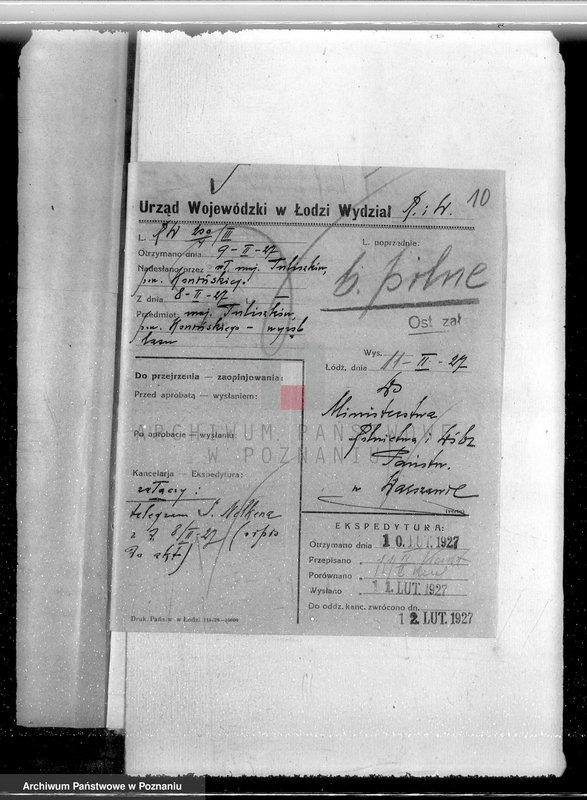 10
Urząd Wojewódzki w Łodzi Wydział R. i W.
L. RW /III
L. poprzednie:
Otrzymano dnia 9-II-27
Nadesłano przez maj. Tuliszków,
pow. Konińskiego
b. pilne
Z dnia 8-II-27
Przedmiot: maj. Tuliszków,
pow. Konińskiego - wyrąb
lasu
Ost zał
Wys.
Łódź, dnia 11-II-27
Do
Ministerstwa
Rolnictwa i Dóbr
Państw.
w Warszawie
Do przejrzenia — zaopinjowania:
Przed aprobatą — wysłaniem:
Po aprobacie — wysłaniu:
Kancelarja — Ekspedytura:
załączy:
telegram S. Nelkena
z d. 8/II-27 (odpis
do akt)
EKSPEDYTURA:
Otrzymano dnia 10. LUT. 1927
Przepisano
Porównano
Wysłano 11. LUT. 1927
Do oddz. kanc. zwrócono dn.
12. LUT. 1927
Druk. Państw. w Łodzi
ARCHIWUM PAŃSTWOWE
W POZNANIU
Archiwum Państwowe w Poznaniu